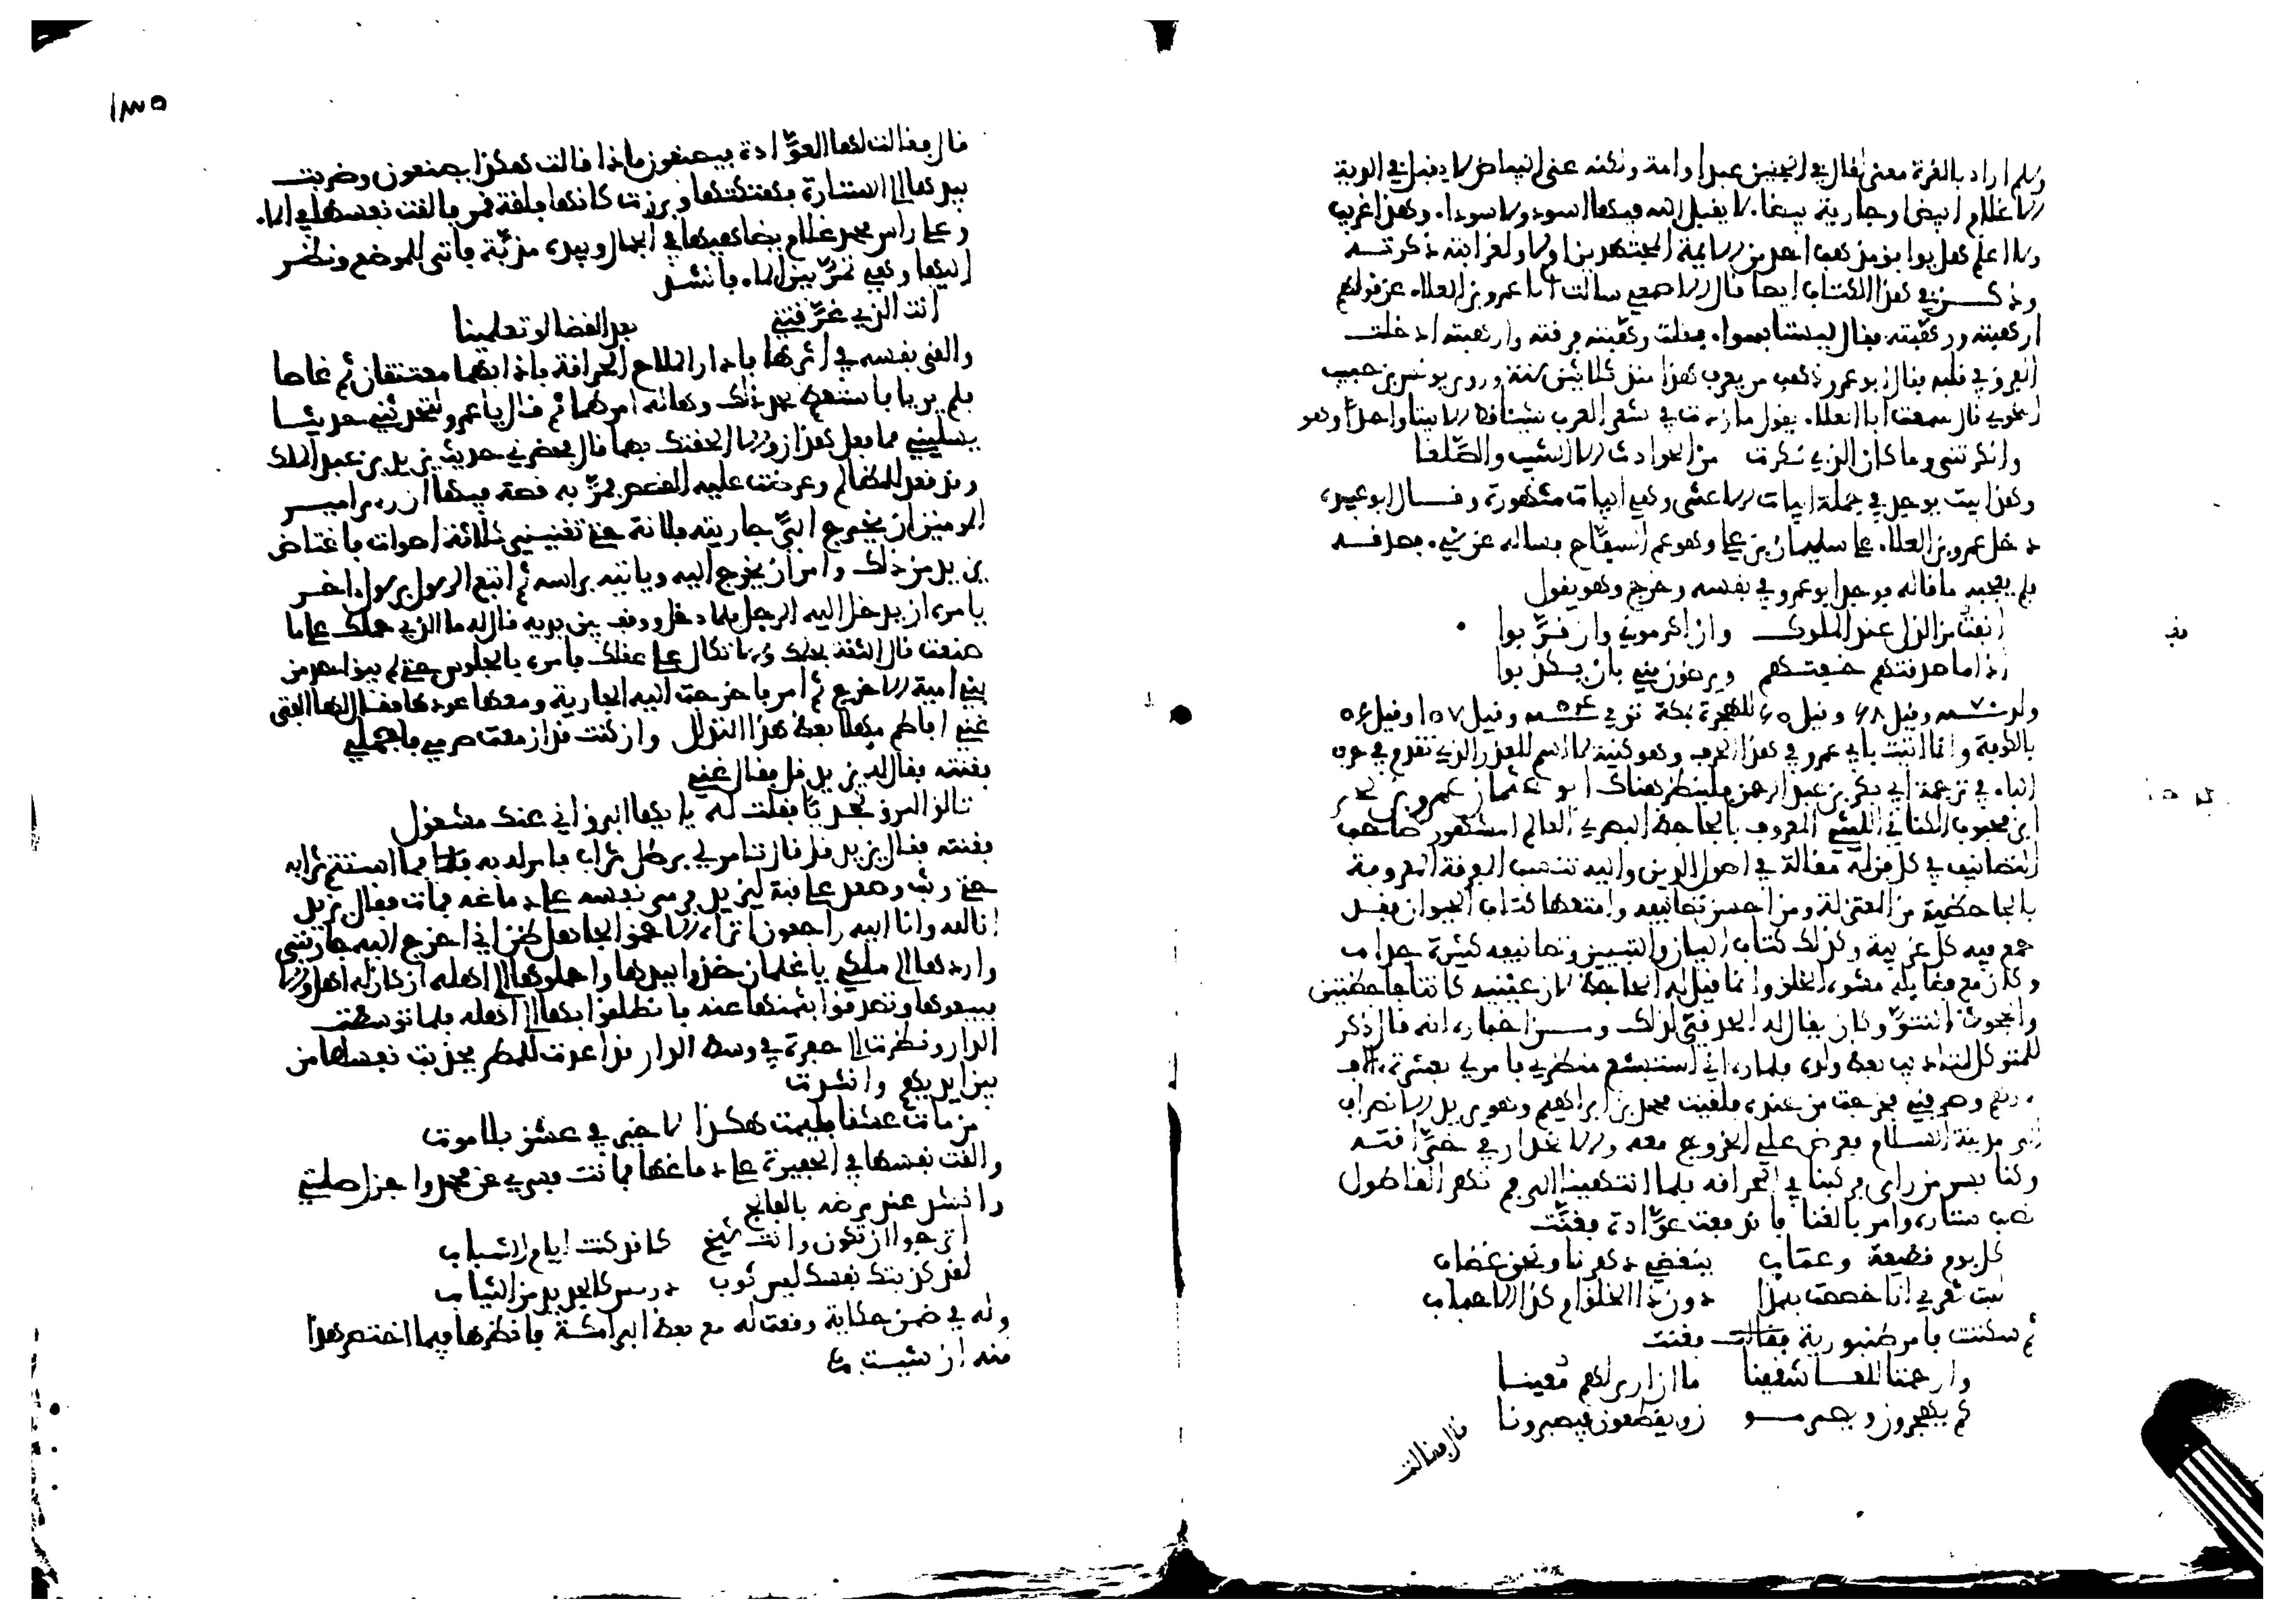 وسلم اراد بالغرة معنى لقال في الجنين عبد او امة ولكنه عنى البياض لا يقبل في الدية
الا غلام ابيض او جارية بيضاء لا يقبل الله فيها اسود ولا سوداء وهذا غريب
ولا اعلم هل يوافق مذهب احد من الايمة المجتهدين ام لا ولغرابته ذكرته
وذكر في هذا الكتاب ايضا قال الاصمعي سالت ابا عمرو بن العلاء عن قولهم
ارهبته ورهبته فقال ليستا سواء فقلت رهبته فرقته وارهبته ادخلت
الفرق في قلبه فقال ابو عمرو ذهب من يعرف هذا منذ ثلاثين سنة وروى يونس بن حبيب
النحوي قال سمعت ابا العلاء يقول ما زدت في شعر العرب شيئا قط الا بيتا واحدا وهو
وانكرتني وما كان الذي نكرت من الحوادث الا الشيب والصلعا
وهذا بيت يوجد في جملة ابيات الاعشى وهي ابيات مشهورة وقال ابو عبيدة
دخل عمرو بن العلاء على سليمان بن علي وهو عم السفاح فساله عن شيء فصدقه
فلم يعجبه ما قاله فوجد ابو عمرو في نفسه وخرج وهو يقول
انفت من الذل عند الملوك وان اكرموني وان قربوا
اذا ما صدقتهم خفتهم ويرضون مني بان يكذبوا
ولد سنة ٧٠ وقيل ٦٨ وقيل ٦٥ للهجرة بمكة توفي سنة ١٥٤ وقيل ١٥٧ وقيل ١٥٦
بالكوفة وانما اتيت بابي عمرو في هذا الحرف وهو كنية لا اسم للعذر الذي تقدم في حرف
الباء في ترجمة ابي بكر بن عبد الرحمن فلينظر هناك ابو عثمان عمرو بن بحر
ابن محبوب الكناني الليثي المعروف بالجاحظ البصري العالم المشهور صاحب
التصانيف في كل فن له مقالة في اصول الدين واليه تنتسب الفرقة المعروفة
بالجاحظية من المعتزلة ومن احسن تصانيفه وامتعها كتاب الحيوان فقد
جمع فيه كل غريبة وكذلك كتاب البيان والتبيين وتصانيفه كثيرة جدا
وكان مع فضايله مشوه الخلق وانما قيل له الجاحظ لان عينيه كانتا جاحظتين
والجحوظ النتو وكان يقال له الحدقي لذلك ومن اخباره انه قال ذكرت
للمتوكل لتاديب بعض ولده فلما راني استبشع منظري فامر لي بعشرة الاف
درهم وصرفني فخرجت من عنده فلقيت محمد بن ابراهيم وهو يريد الانصراف
الى مدينة السلام فعرض علي الخروج معه والانحدار في حراقته
وكنا بسر من راى فركبنا في الحراقة فلما انتهينا الى فم نهر القاطول
نصب ستاره وامر بالغنا فاندفعت عوادة فغنت
كل يوم قطيعة وعتاب ينقضي دهرنا ونحن غضاب
ليت شعري انا خصصت بهذا دون ذا الخلق ام كذا الاحباب
ثم سكتت فامر طنبورية فغنت
وارحمتا للعاشقينا ما ان ارى لهم معينا
كم يهجرون ويصرمون ويقطعون فيصبرونا
قال فقالت
١٣٣٥
قال فقالت لها العوادة فيصنعون ماذا قالت هكذا يصنعون وضربت
بيدها الى الستارة فهتكتها وبرزت كانها فلقة قمر فالقت نفسها في الماء
وعلى راس محمد غلام يضاهيها في الجمال وبيده مذبة فاتى الموضع ونظر
اليها وهي تمر بين الماء فانشد
انت الذي غرقتني بعد القضا لو تعلمينا
والقى بنفسه في اثرها فادار الملاح الحراقة فاذا بهما معتنقان ثم غاصا
فلم يريا فاستعظم محمد ذلك وهاله امرهما ثم قال يا عمرو لتحدثني حديثا
يسليني مما فعل هذان والا الحقتك بهما قال فحضرني حديث يزيد بن عبد الملك
وقد قعد للمظالم وعرضت عليه القصص فمر به قصة فيها ان راى امير
المومنين ان يخرج الي جاريته فلانة حتى تغنيني ثلاثة اصوات فاغتاظ
يزيد من ذلك وامر ان يخرج اليه وياتيه براسه ثم اتبع الرسول برسول اخر
يامره ان يدخل اليه الرجل فلما دخل ووقف بين يديه قال له ما الذي حملك على ما
صنعت قال الثقة بحلمك والاتكال على عفوك فامره بالجلوس حتى لم يبق احد من
بني امية الا خرج ثم امر فاخرجت اليه الجارية ومعها عودها فقال لها الفتى
غني افاطم مهلا بعض هذا التذلل وان كنت قد ازمعت صرمي فاجملي
فغنته فقال له يزيد قل فقال غني
تالق البرق نجديا فقلت له يا ايها البرق اني عنك مشغول
فغنته فقال يزيد قل قال تامر لي برطل شراب فامر له به فما استتم شرابه
حتى وثب وصعد على قبة ليزيد فرمى نفسه على دماغه فمات فقال يزيد
انا لله وانا اليه راجعون اتراه الاحمق الجاهل ظن اني اخرج اليه جاريتي
واردها الى ملكي يا غلمان خذوا بيدها واحملوها الى اهله ان كان له اهل والا
فبيعوها وتصدقوا بثمنها عنه فانطلقوا بها الى اهله فلما توسطت
الدار ونظرت الى حفرة في وسط الدار قد اعدت للمطر فجذبت نفسها من
بين ايديهم وانشدت
من مات عشقا فليمت هكذا لا خير في عشق بلا موت
والقت نفسها في الحفيرة على دماغها فماتت فسري عن محمد واجزل صلتي
وانشد عند مرضه بالفالج
اترجوا ان تكون وانت شيخ كما قد كنت ايام الشباب
لقد كذبتك نفسك ليس ثوب دريس كالجديد من الثياب
وله في ضمن حكاية وقعت له مع بعض البرامكة فانظرها فيما اختصر هذا
منه ان شيت